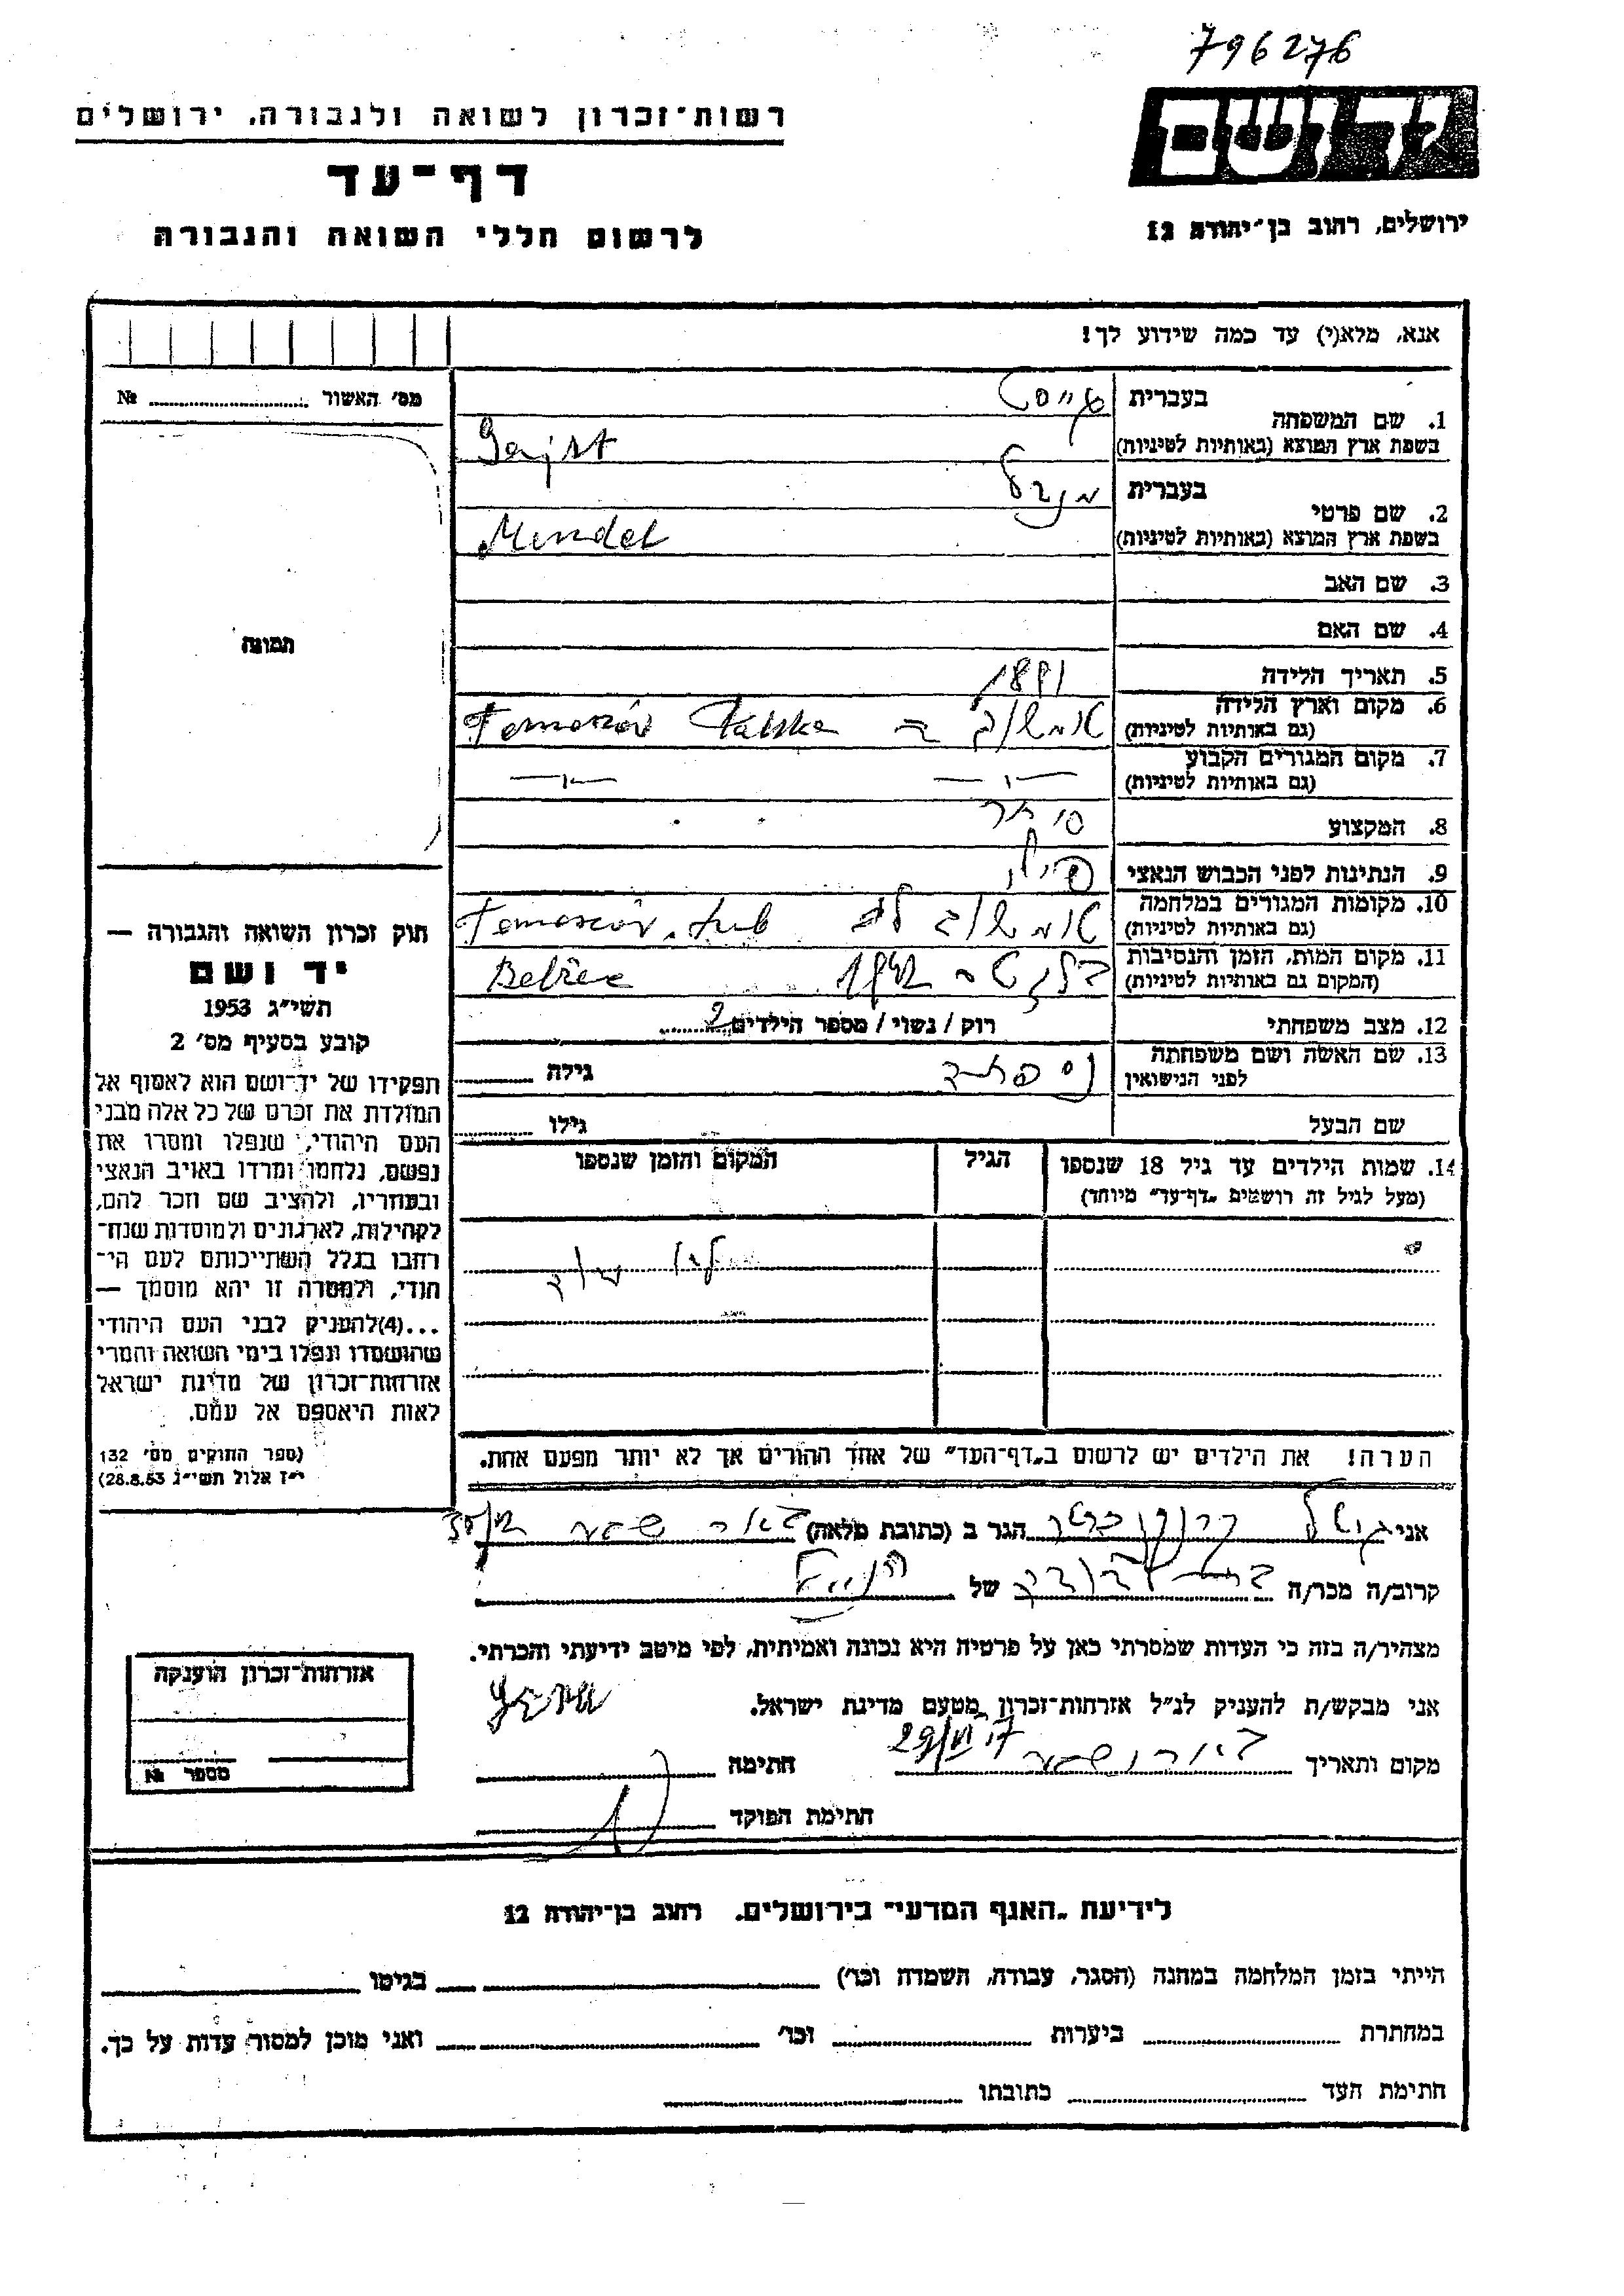 796276
יד ושם
ירושלים, רחוב בן־יהודה 12
רשות־זכרון לשואה ולגבורה, ירושלים
דף־עד
לרשום חללי השואה והגבורה
אנא, מלא(י) עד כמה שידוע לך!
מס׳ האשור № 
תמונה
1. שם המשפחה
בעברית גייסט
בשפת ארץ המוצא (באותיות לטיניות) Gajst
2. שם פרטי
בעברית מנדל
בשפת ארץ המוצא (באותיות לטיניות) Mendel
3. שם האב
4. שם האם
5. תאריך הלידה 1891
6. מקום וארץ הלידה
(גם באותיות לטיניות) Tomaszów Polska
7. מקום המגורים הקבוע
(גם באותיות לטיניות) —"— —"—
8. המקצוע סוחר
9. הנתינות לפני הכבוש הנאצי פולין
10. מקומות המגורים במלחמה
(גם באותיות לטיניות) Tomaszów. Lub
11. מקום המות, הזמן והנסיבות
(המקום גם באותיות לטיניות) 1942 Bełżec
12. מצב משפחתי רוק / נשוי / מספר הילדים 2
13. שם האשה ושם משפחתה
לפני הנישואין נספתה גילה
שם הבעל גילו
14. שמות הילדים עד גיל 18 שנספו הגיל המקום והזמן שנספו
(מעל לגיל זה רושמים „דף־עד״ מיוחד)
הערה! את הילדים יש לרשום ב„דף־העד״ של אחד ההורים אך לא יותר מפעם אחת.
חוק זכרון השואה והגבורה —
יד ושם
תשי״ג 1953
קובע בסעיף מס׳ 2
תפקידו של יד־ושם הוא לאסוף אל
המולדת את זכרם של כל אלה מבני
העם היהודי, שנפלו ומסרו את
נפשם, נלחמו ומרדו באויב הנאצי
ובעוזריו, ולהציב שם וזכר להם,
לקהילות, לארגונים ולמוסדות שנח־
רחבו בגלל השתייכותם לעם הי־
הודי, ולמטרה זו יהא מוסמך —
...(4)להעניק לבני העם היהודי
שהושמדו ונפלו בימי השואה והמרי
אזרחות־זכרון של מדינת ישראל
לאות היאספם אל עמם.
(ספר החוקים מס׳ 132
י״ז אלול תשי״ג 28.8.53)
אני הגר ב (כתובת מלאה) באר שבע
קרוב/ה מכר/ה של
מצהיר/ה בזה כי העדות שמסרתי כאן על פרטיה היא נכונה ואמיתית, לפי מיטב ידיעתי והכרתי.
אני מבקש/ת להעניק לנ״ל אזרחות־זכרון מטעם מדינת ישראל.
מקום ותאריך באר שבע חתימה
חתימת הפוקד
אזרחות־זכרון הוענקה
מספר №
לידיעת „האגף המדעי״ בירושלים. רחוב בן־יהודה 12
הייתי בזמן המלחמה במחנה (הסגר, עבודה, השמדה וכו׳) בגיטו
במחתרת ביערות וכו׳ ואני מוכן למסור עדות על כך.
חתימת העד כתובתו